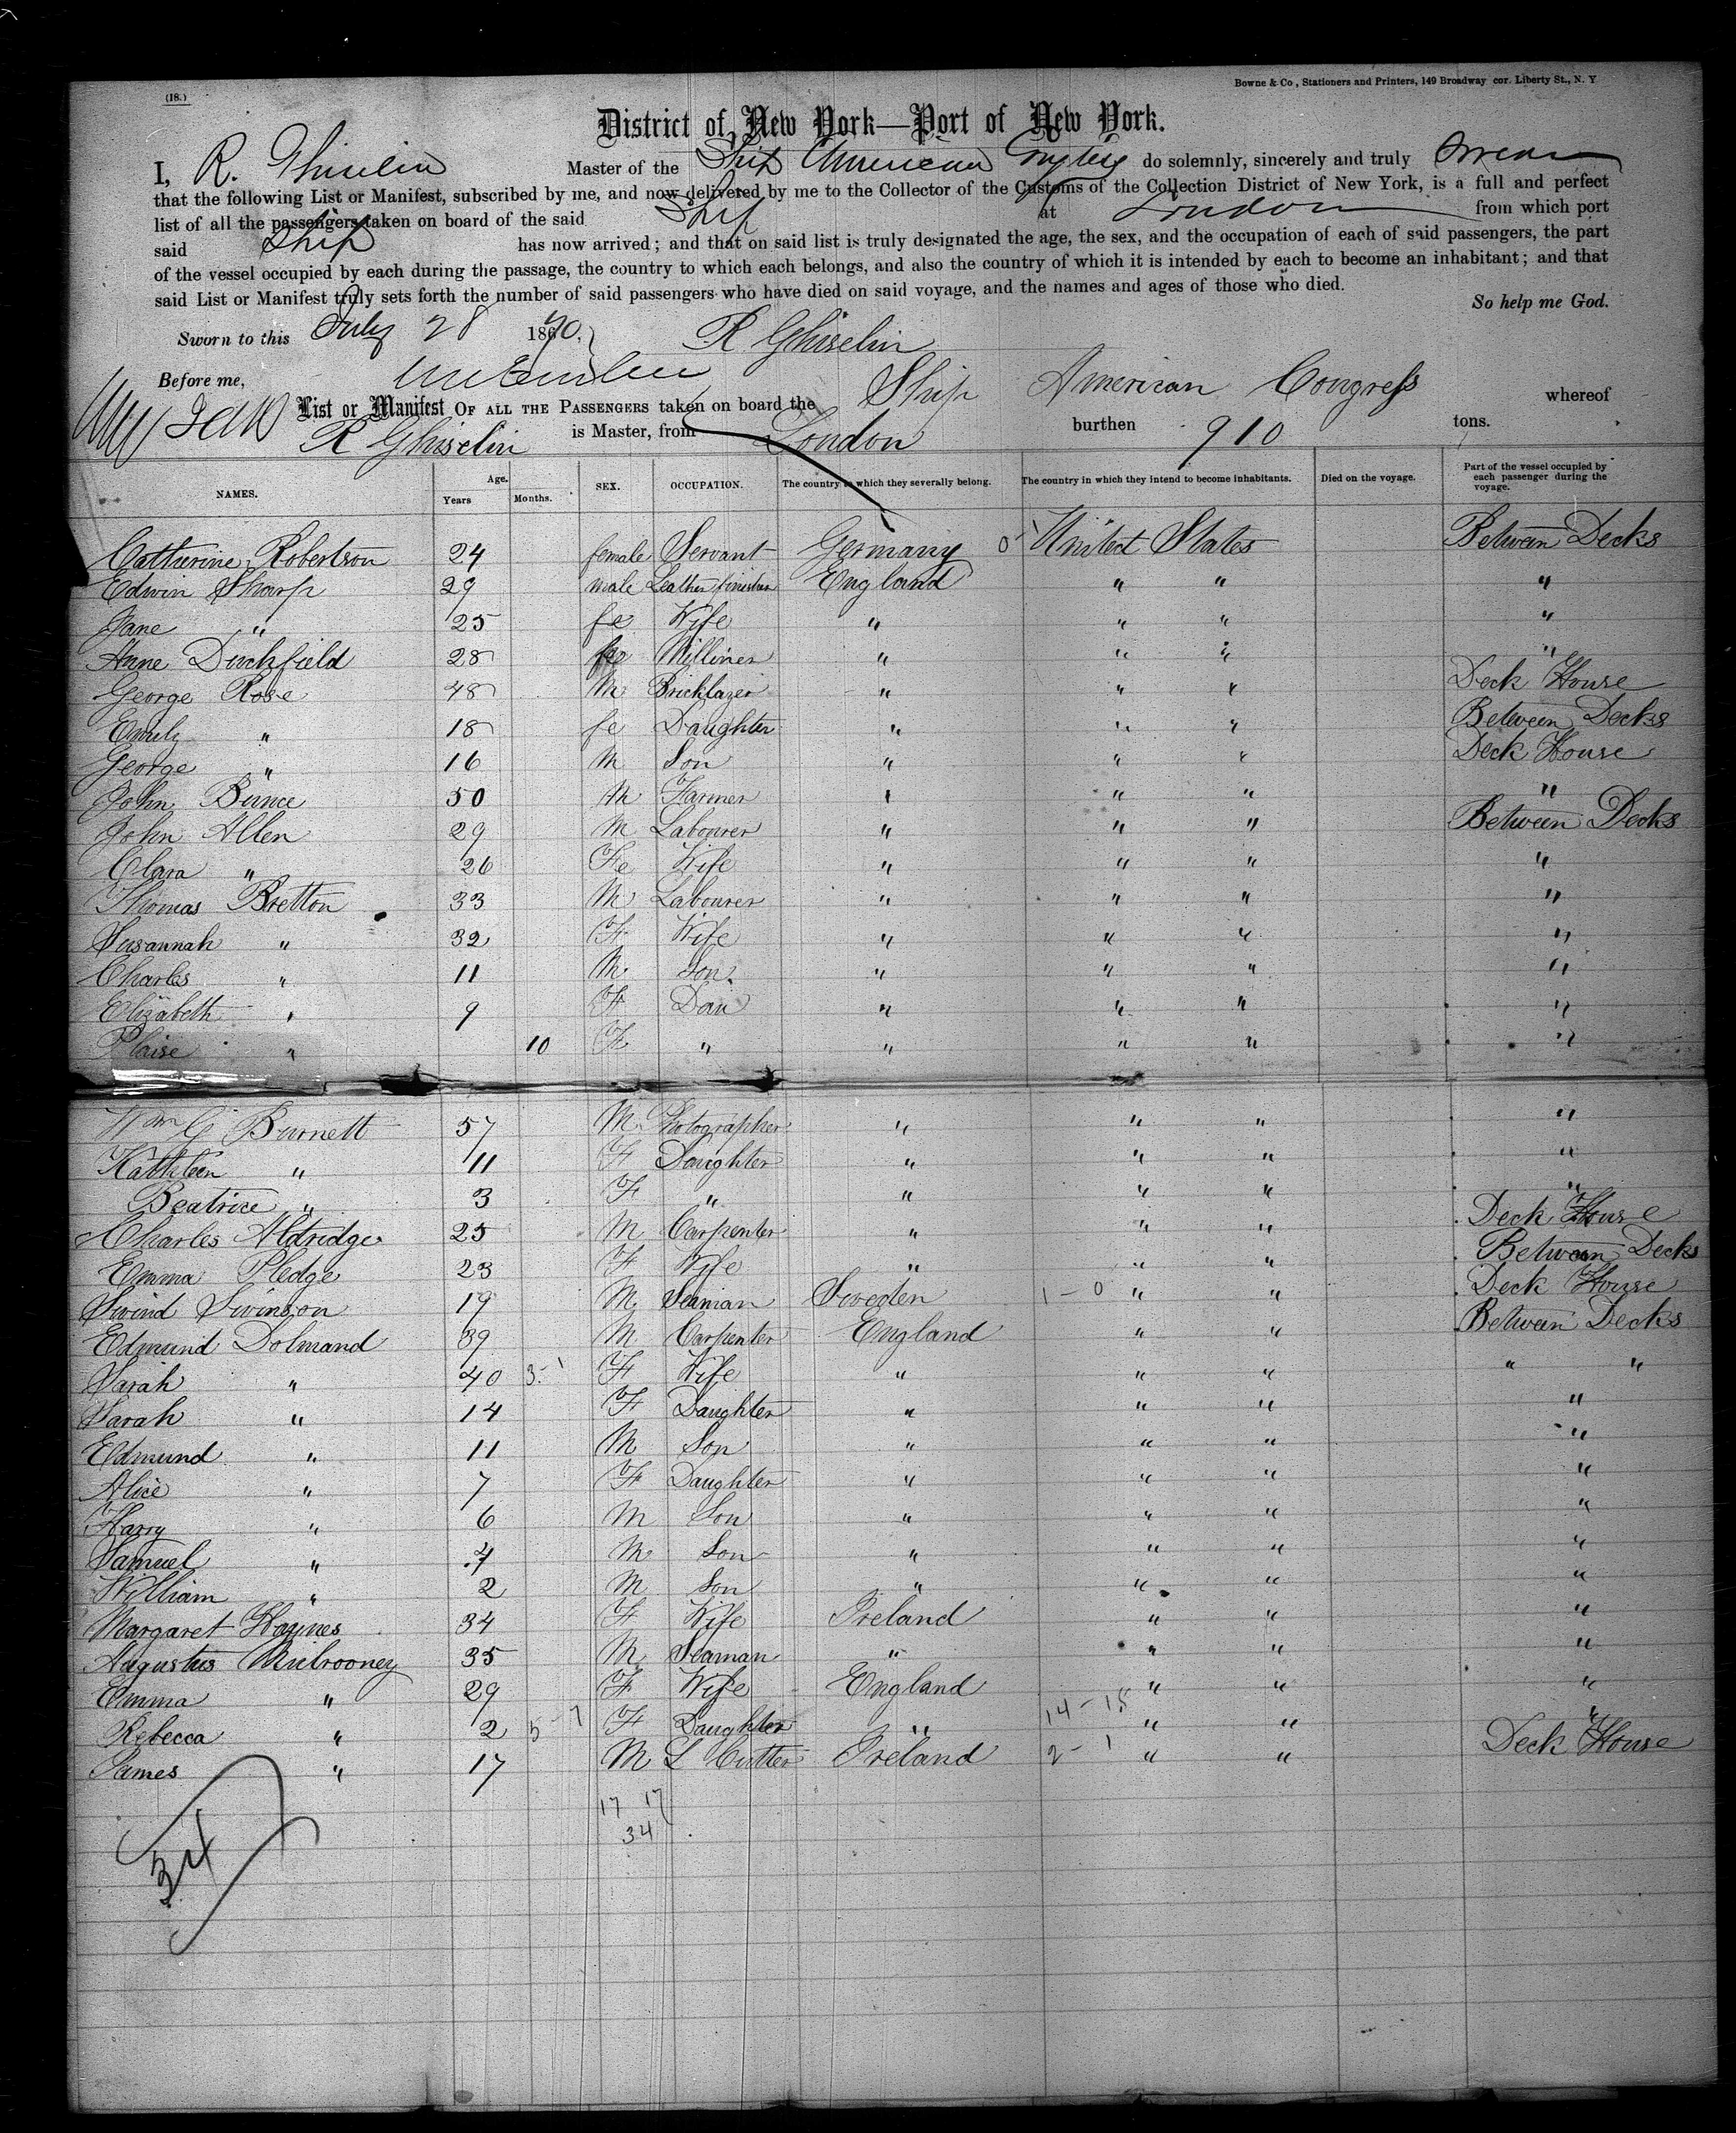 (18.)
Bowne & Co., Stationers and Printers, 149 Broadway cor. Liberty St., N. Y
District of New York—Port of New York.
I, R. Ghiselin Master of the Ship American Congress do solemnly, sincerely and truly swear
that the following List or Manifest, subscribed by me, and now delivered by me to the Collector of the Customs of the Collection District of New York, is a full and perfect
list of all the passengers taken on board of the said Ship at London from which port
said Ship has now arrived; and that on said list is truly designated the age, the sex, and the occupation of each of said passengers, the part
of the vessel occupied by each during the passage, the country to which each belongs, and also the country of which it is intended by each to become an inhabitant; and that
said List or Manifest truly sets forth the number of said passengers who have died on said voyage, and the names and ages of those who died.
So help me God.
Sworn to this July 28 1870. R Ghiselin
Before me,
List or Manifest OF ALL THE PASSENGERS taken on board the Ship American Congress whereof
R Ghiselin is Master, from London burthen 910 tons.
NAMES. Age. Years Months. SEX. OCCUPATION. The country to which they severally belong. The country in which they intend to become inhabitants. Died on the voyage. Part of the vessel occupied by each passenger during the voyage.
Catherine Robertson 24 female Servant Germany 0-1 United States Between Decks
Edwin Sharp 29 male Leather finisher England " " "
Jane " 25 fe Wife " " " "
Anne Duckfield 28 fe Milliner " " " "
George Rose 48 M Bricklayer " " " Deck House
Emily " 18 fe Daughter " " " Between Decks
George " 16 M Son " " " Deck House
John Bunce 50 M Farmer " " " "
John Allen 29 M Labourer " " " Between Decks
Clara " 26 Fe Wife " " " "
Thomas Bretton 33 M Labourer " " " "
Susannah " 32 F Wife " " " "
Charles " 11 M Son " " " "
Elizabeth " 9 F Dau " " " "
Plaise " 10 F " " " " "
Wm G Burnett 57 M Photographer " " " "
Kathleen " 11 F Daughter " " " "
Beatrice " 3 F " " " " "
Charles Aldridge 25 M Carpenter " " " Deck House
Emma Pledge 23 F Wife " " " Between Decks
Swind Swinson 19 M Seaman Sweden 1-0 " " Deck House
Edmund Dolmand 39 M Carpenter England " " Between Decks
Sarah " 40 3-1 F Wife " " " " "
Sarah " 14 F Daughter " " " "
Edmund " 11 M Son " " " "
Alice " 7 F Daughter " " " "
Harry " 6 M Son " " " "
Samuel " 4 M Son " " " "
William " 2 M Son " " " "
Margaret Haynes 34 F Wife Ireland " " "
Augustus Mulrooney 35 M Seaman " " " "
Emma " 29 F Wife England " " "
Rebecca " 2 5-7 F Daughter " 14-18 " " "
James " 17 M L Cutter Ireland 2-1 " " Deck House
17 17
34
34